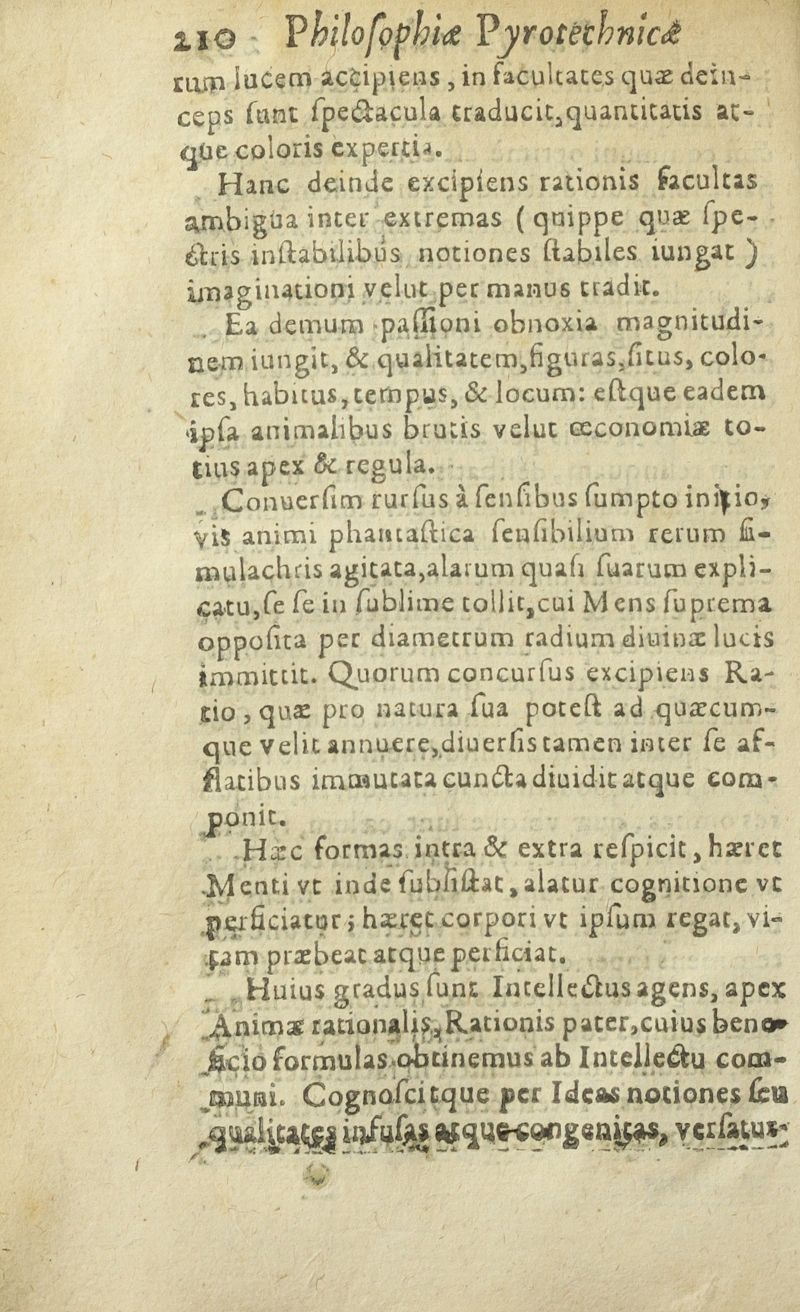 210 Philoſophiæ Pyrotechnicæ
rum lucem accipiens, in facultates quæ dein-
ceps ſunt ſpectacula traducit, quantitatis at-
que coloris expertia.
Hanc deinde excipiens rationis facultas
ambigua inter extremas (quippe quæ ſpe-
ctris inſtabilibus notiones ſtabiles iungat)
imaginationi velut per manus tradit.
Ea demum paſſioni obnoxia magnitudi-
nem iungit, & qualitatem, figuras, ſitus, colo-
res, habitus, tempus, & locum: eſtque eadem
ipſa animalibus brutis velut œconomiæ to-
tius apex & regula.
Conuerſim rurſus à ſenſibus ſumpto initio,
vis animi phantaſtica ſenſibilium rerum ſi-
mulachris agitata, alarum quaſi ſuarum expli-
catu, ſe ſe in ſublime tollit, cui Mens ſuprema
oppoſita per diametrum radium diuinæ lucis
immittit. Quorum concurſus excipiens Ra-
tio, quæ pro natura ſua poteſt ad quæcum-
que velit annuere, diuerſis tamen inter ſe af-
flatibus immutata cuncta diuidit atque com-
ponit.
Hæc formas intra & extra reſpicit, hæret
Menti vt inde ſubſiſtat, alatur cognitione vt
perficiatur; hæret corpori vt ipſum regat, vi-
tam præbeat atque perficiat.
Huius gradus ſunt Intellectus agens, apex
Animæ rationalis, Rationis pater, cuius bene-
ficio formulas obtinemus ab Intellectu com-
muni. Cognoſcitque per Ideas notiones ſeu
qualitates infuſas atque congenitas, verſatur-